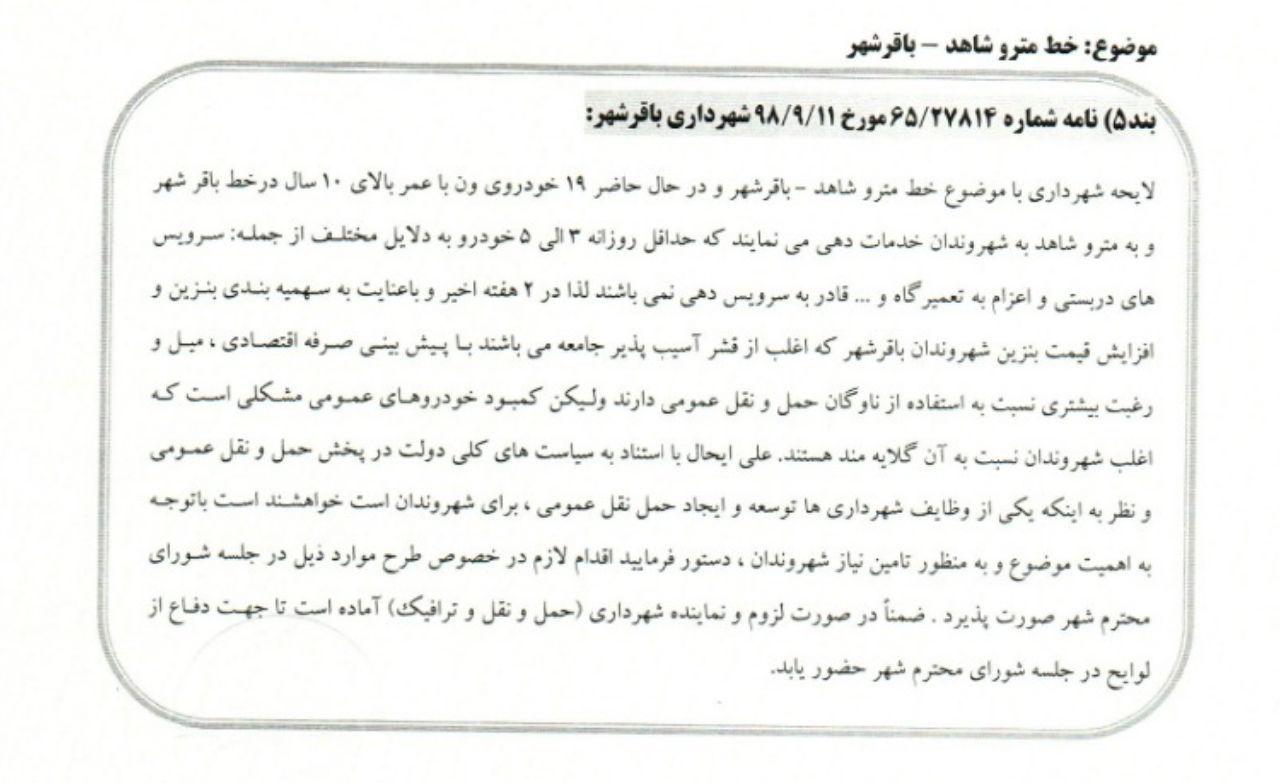 موضوع: خط مترو شاهد – باقرشهر
بند۵) نامه شماره ۶۵/۲۷۸۱۴ مورخ ۹۸/۹/۱۱ شهرداری باقرشهر:
لایحه شهرداری با موضوع خط مترو شاهد -باقرشهر و در حال حاضر ۱۹ خودروی ون با عمر بالای ۱۰ سال درخط باقر شهر
و به مترو شاهد به شهروندان خدمات دهی می نمایند که حداقل روزانه ۳ الی ۵ خودرو به دلایل مختلف از جمله: سرویس
های دربستی و اعزام به تعمیرگاه و ... قادر به سرویس دهی نمی باشند لذا در ۲ هفته اخیر و باعنایت به سهمیه بندی بنزین و
افزایش قیمت بنزین شهروندان باقرشهر که اغلب از قشر آسیب پذیر جامعه می باشند با پیش بینی صرفه اقتصادی ، میل و
رغبت بیشتری نسبت به استفاده از ناوگان حمل و نقل عمومی دارند ولیکن کمبود خودروهای عمومی مشکلی است که
اغلب شهروندان نسبت به آن گلایه مند هستند. علی ایحال با استناد به سیاست های کلی دولت در پخش حمل و نقل عمومی
و نظر به اینکه یکی از وظایف شهرداری ها توسعه و ایجاد حمل نقل عمومی ، برای شهروندان است خواهشند است باتوجه
به اهمیت موضوع و به منظور تامین نیاز شهروندان ، دستور فرمایید اقدام لازم در خصوص طرح موارد ذیل در جلسه شورای
محترم شهر صورت پذیرد . ضمناً در صورت لزوم و نماینده شهرداری (حمل و نقل و ترافیک) آماده است تا جهت دفاع از
لوایح در جلسه شورای محترم شهر حضور یابد.